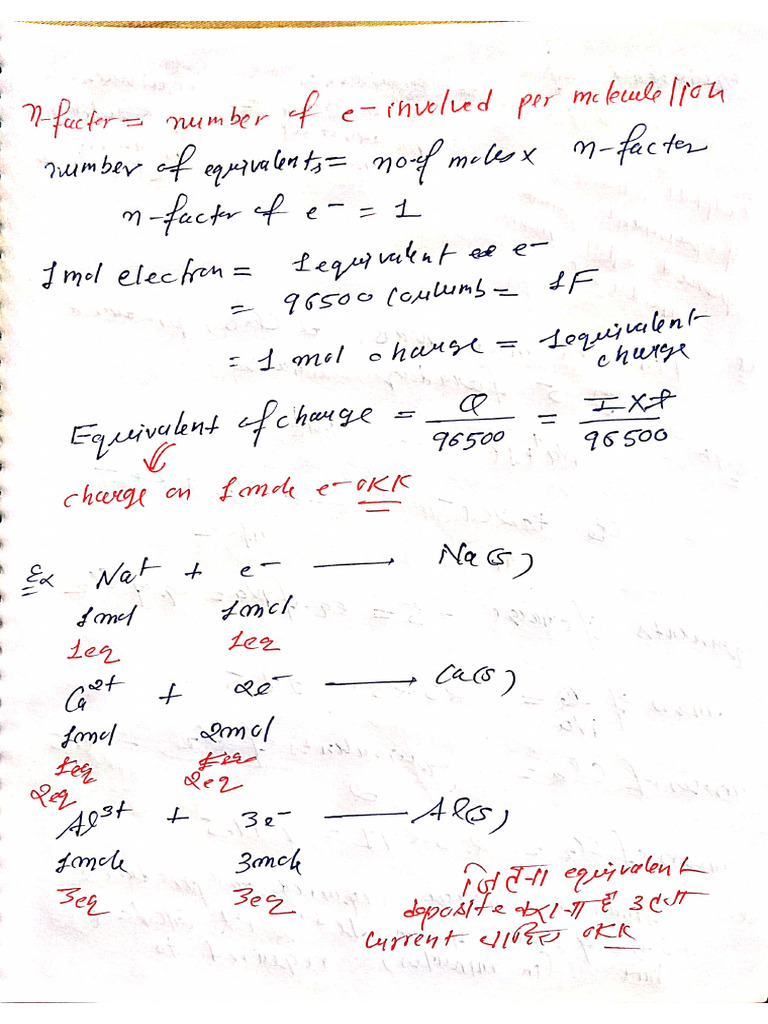 n-factor = number of e- involved per molecule/ion
number of equivalents = no. of moles x n-factor
n-factor of e- = 1
1 mol electron = 1 equivalent e-
= 96500 Coulumb = 1F
= 1 mol charge = 1 equivalent charge
Equivalent of charge = Q/96500 = I x t/96500
charge on 1 mole e- OKK
Ex Na+ + e- ⟶ Na(s)
1mol 1mol
1eq 1eq
Ca2+ + 2e- ⟶ Ca(s)
1mol 2mol
1eq 1eq
2eq 2eq
Al3+ + 3e- — Al(s)
1mole 3mole
3eq 3eq
जितना equivalent
deposite करना है उतना
current चाहिए OKK